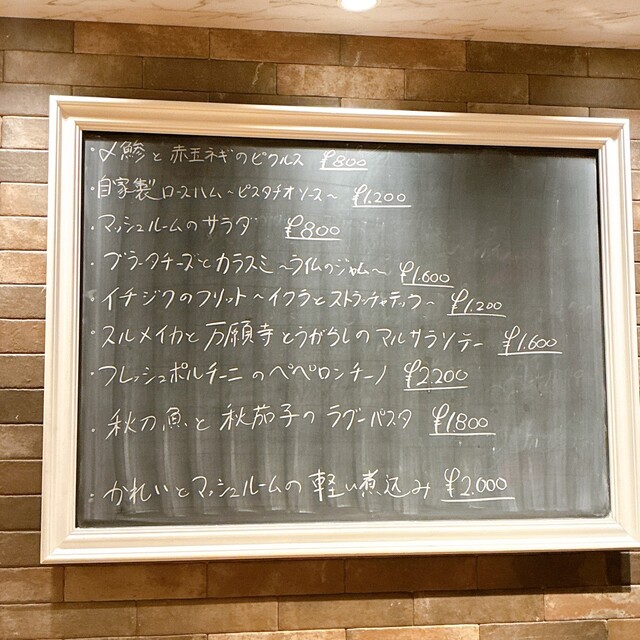 ・〆鯵と赤玉ネギのピクルス ¥800
・自家製ロースハム〜ピスタチオソース〜 ¥1.200
・マッシュルームのサラダ ¥800
・ブラータチーズとカラスミ〜ライムのジャム〜 ¥1.600
・イチジクのフリット〜イクラとストラッチャテッラ〜 ¥1.200
・スルメイカと万願寺とうがらしのマルサラソテー ¥1.600
・フレッシュポルチーニのペペロンチーノ ¥2.200
・秋刀魚と秋茄子のラグーパスタ ¥1800
・かれいとマッシュルームの軽い煮込み ¥2.000